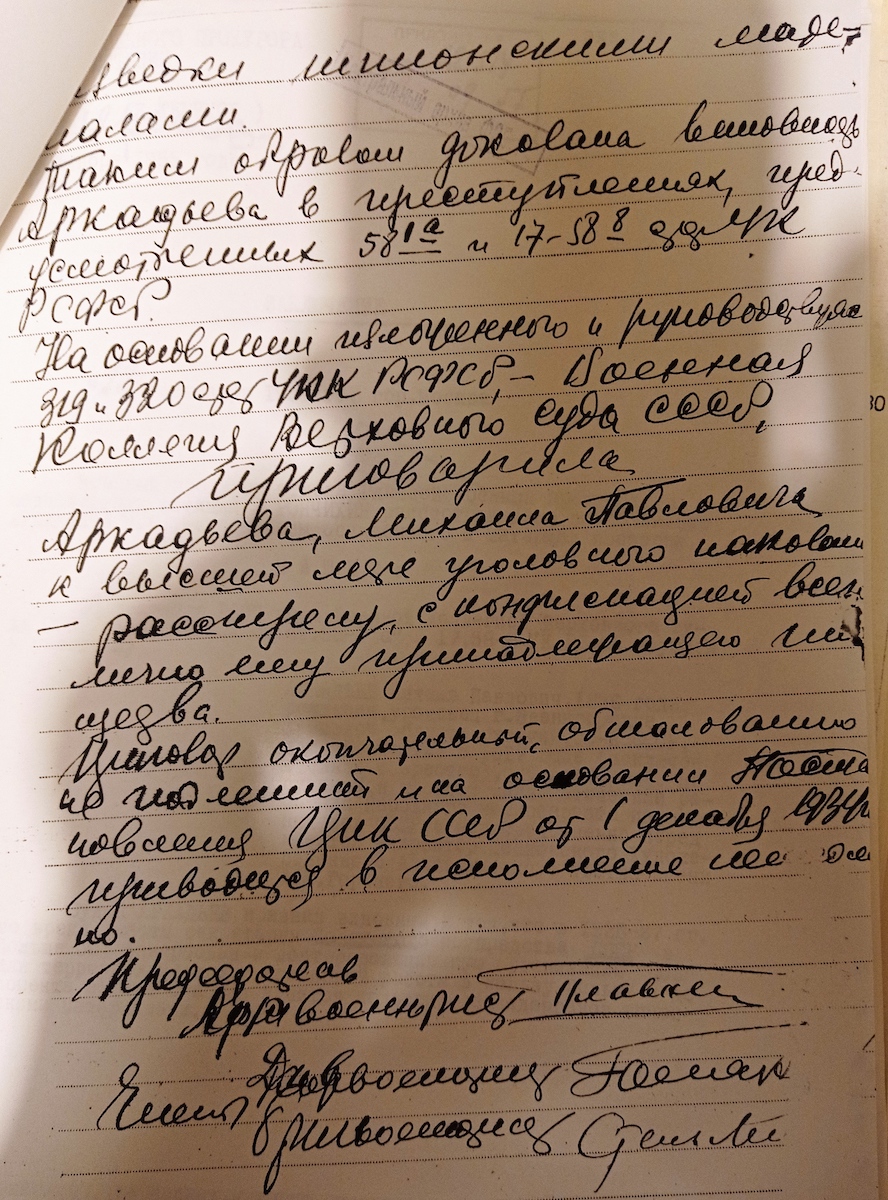 зведки шпионскими мате-
иалами.
Таким образом доказана виновность
Аркадьева в преступлениях, пред-
усмотренных 58 1а и 17-58 8 ст УК
РСФСР.
На основании изложенного и руководствуясь
319 и 320 ст УПК РСФСР, – Военная
Коллегия Верховного Суда СССР,
приговорила
Аркадьева, Михаила Павловича
к высшей мере уголовного наказани
– расстрелу, с конфискацией всего
лично ему принадлежащего иму
щества.
Приговор окончательный, обжалованию
не подлежит и на основании Поста
новления ЦИК СССР от 1 декабря 1934 г
приводится в исполнение
но.
Председатель
Армвоенюрист Плавнек
Члены Диввоенюрист
Бригвоенюрист
30